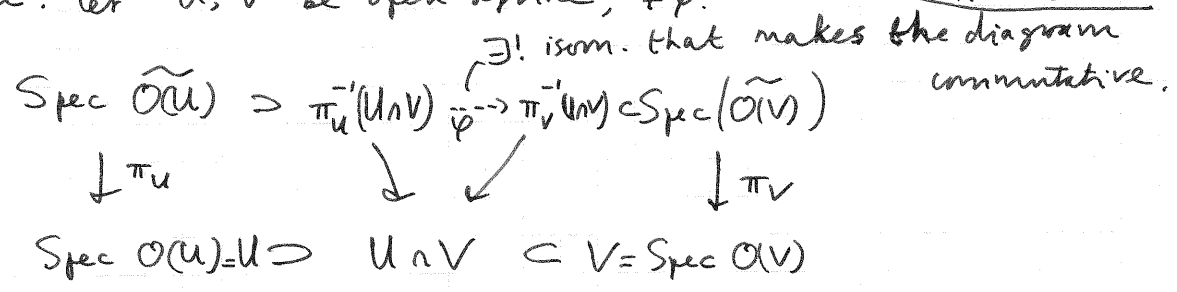 let U, V be open affine,
∃! isom. that makes the diagram
commutative.
Spec Õ(U) ⊃ π_U^{-1}(U∩V) --φ--> π_V^{-1}(U∩V) ⊂ Spec(Õ(V))
↓ π_U ↘ ↙ ↓ π_V
Spec O(U)=U ⊃ U∩V ⊂ V=Spec O(V)